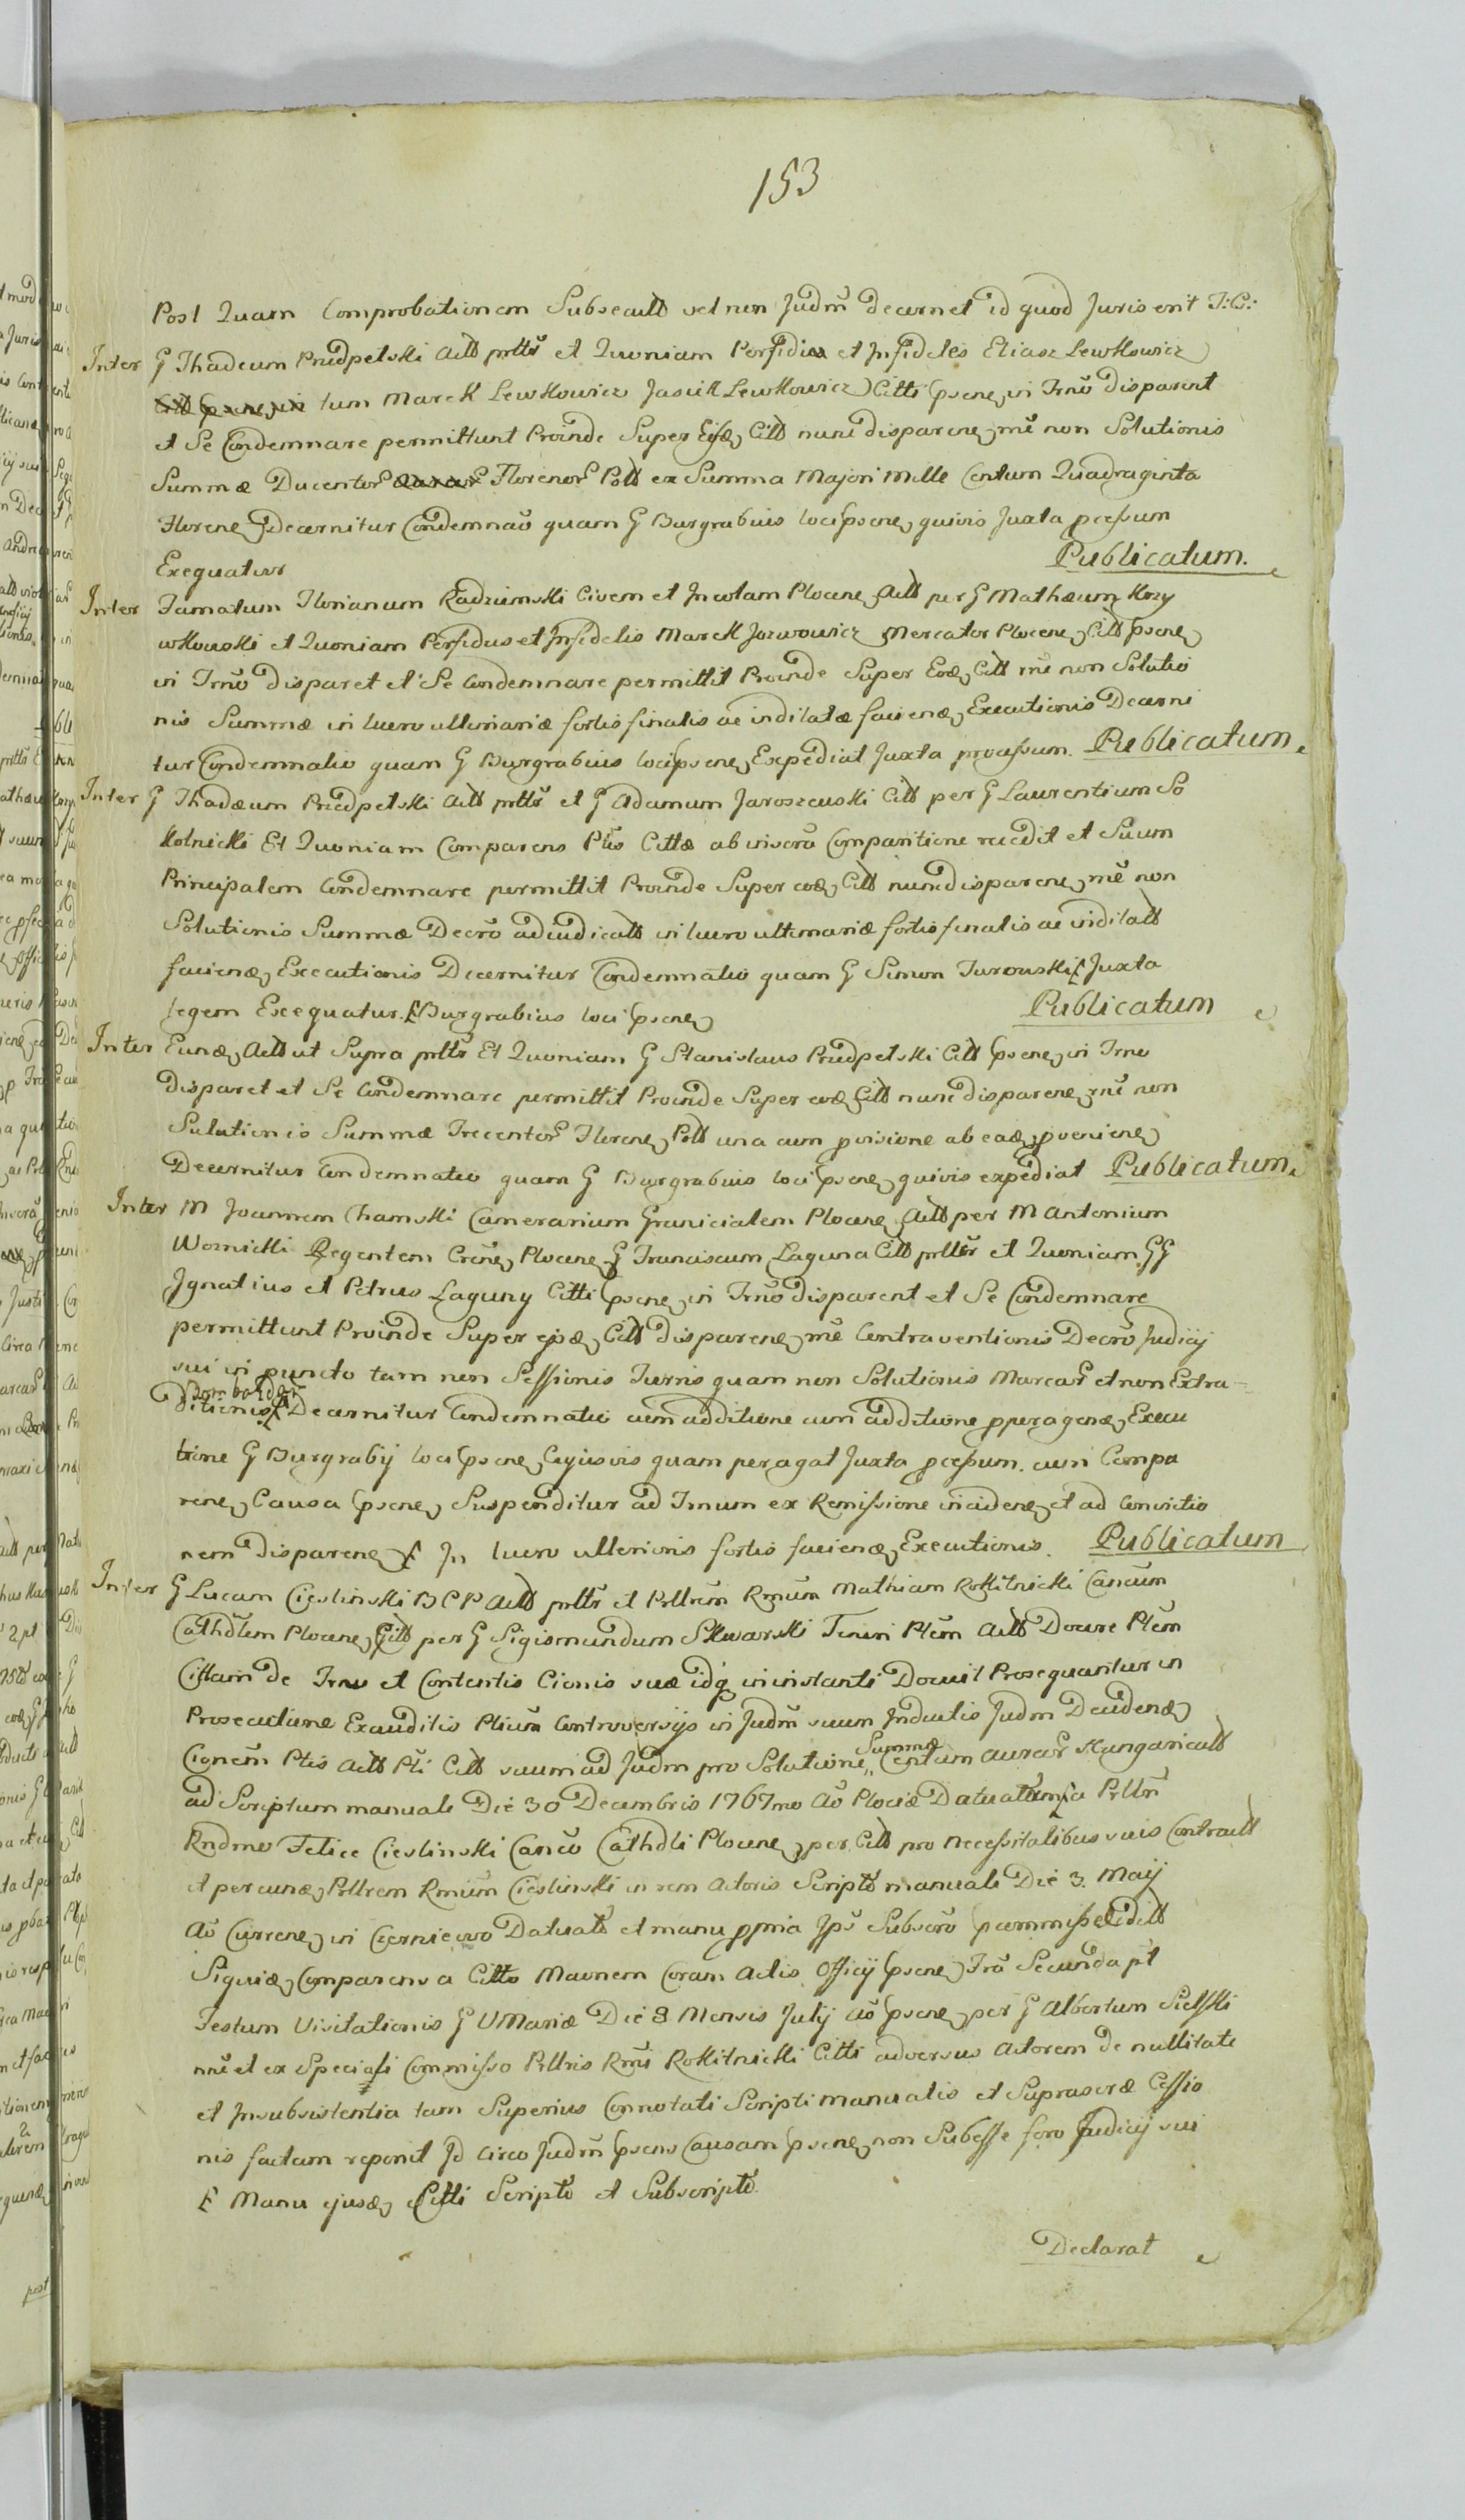 153
Post Quam Comprobationem Subsecutt vel non Judm decernet id quod Juris erit J:C:
Inter G Thadeum Przedpelski Actt prtts et Quoniam Perfidus et Infideles Eliasz Lewkowicz
tum Marek Lewkowicz Jasiek Lewkowicz Citti psene in Trno disparent
et Se Condemnare permittunt Proinde Super Eisd Citt nunc disparene rne non Solutionis
Summæ Ducentor Florenor Poll ex Summa Majori Mille Centum Quadraginta
Florene Decernitur Condemnao quam G Burgrabius loci psene quivis Juxta pcessum
Exequatur Publicatum.
Inter Famatum Florianum Radzimski Civem et Incolam Plocene Actt per G Mathæum Krzy
wkowski et Quoniam Perfidus et Infidelis Marek Jozwowicz Mercator Plocene Citt psene
in Trno disparet et Se Condemnare permittit Proinde Super Eod Citt rne non Solutio
nis Summæ in lucro ulterioriæ fortis finalis ac indilatæ faciend Executionis Decerni
tur Condemnatio quam G Burgrabius loci psene Expediat Juxta processum. Publicatum
Inter G Thadæum Przedpelski Actt prtts et G Adamum Jaroszewski Citt per G Laurentium So
kolnicki Et Quoniam Comparens Ptis Cittæ ab inscro Comparitione recedit et Suum
Principalem Condemnare permittit Proinde Super eod Citt nunc disparene rne non
Solutionis Summæ Decro adiudicatt in lucro ultimariæ fortis finalis ac indilatt
faciend Executionis Decernitur Condemnatio quam G Simon Turowski Juxta
legem Exequatur. Burgrabius loci psene Publicatum
Inter Eund Actt ut Supra prtts Et Quoniam G Stanislaus Przedpelski Citt psene in Trno
disparet et Se Condemnare permittit Proinde Super eod Citt nunc disparene rne non
Solutionis Summæ Trecentor Florene Poll una cum provisione ab ead proveniene
Decernitur Condemnatio quam G Burgrabius loci psene quivis expediat Publicatum
Inter M Joannem Chamski Camerarium Granicialem Plocene Actt per M Antonium
Woznicki Regentem Crene Plocene G Franciscum Laguna Citt prtts et Quoniam GG
Ignatius et Petrus Laguny Citti psene in Trno disparent et Se Condemnare
permittunt Proinde Super ejsd Citt disparene rne Contraventionis Decro Judicij
sui in puncto tam non Sessionis Turris quam non Solutionis Marcar et non Extra-
ditionis Bombardæ Decernitur Condemnatio cum additione cum additione pperagend Execu
tione G Burgrabij loci psene Cujusvis quam peragat Juxta pcessum. cum Compa
rene Causa psene Suspenditur ad Trnum ex Remissione incidene et ad Convictio
nem disparene In lucro ulterioris fortis faciend Executionis. Publicatum
Inter G Lucam Cieslinski B C P Actt prtts et Plltrem Rmum Mathiam Rokitnicki Cancum
Cathdlem Plocene Citt per G Sigismundum Skwarski Tenvi Ptem Actt Docere Ptem
Cittam de Trno et Contentis Cionis suæ idq in instanti Docuit Prosequantur in
Prosecutione Exauditis Ptium Controversijs in Judm suum Inductis Judm Decidend
Cionem Ptis Actt Pti Citt suum ad Judm pro Solutione Summæ Centum Aurear Hungaricatt
ad Scriptum manuale Die 30 Decembris 1767mo Ao Plociæ Datuatum a Plltri
Rndmo Felice Cieslinski Canco Cathdli Plocene per Citt pro necessitatibus suis Contractt
et per eund Plltrem Rmum Cieslinski in rem Actoris Scripto manuali Die 3. Maij
Ao Currene in Czerniewo Datuato et manu ppria Ips Subscro praemisse edidtt
Siquid Comparens a Citto Mavnem Coram Actis Officij psene Fra Secunda pt
Festum Visitationis G V Mariæ Die 8 Mensis Julij Ao psene per G Albertum Sielski
nne et ex Speciali Commisso Plltris Rmi Rokitnicki Citti adversus Actorem de nullitate
et Insubsistentia tam Superius Connotati Scripti manualis et Suprascræ Cessio
nis factam reponit Id circo Judm psens Causam psene non Subesse foro Judicij sui
Manu ejusd Citti Scripto et Subscripto
Declarat